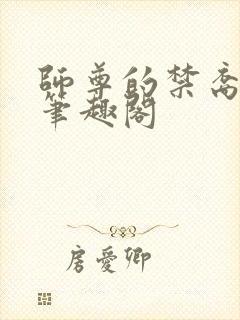 師尊的禁脔
筆趣閣
房愛卿